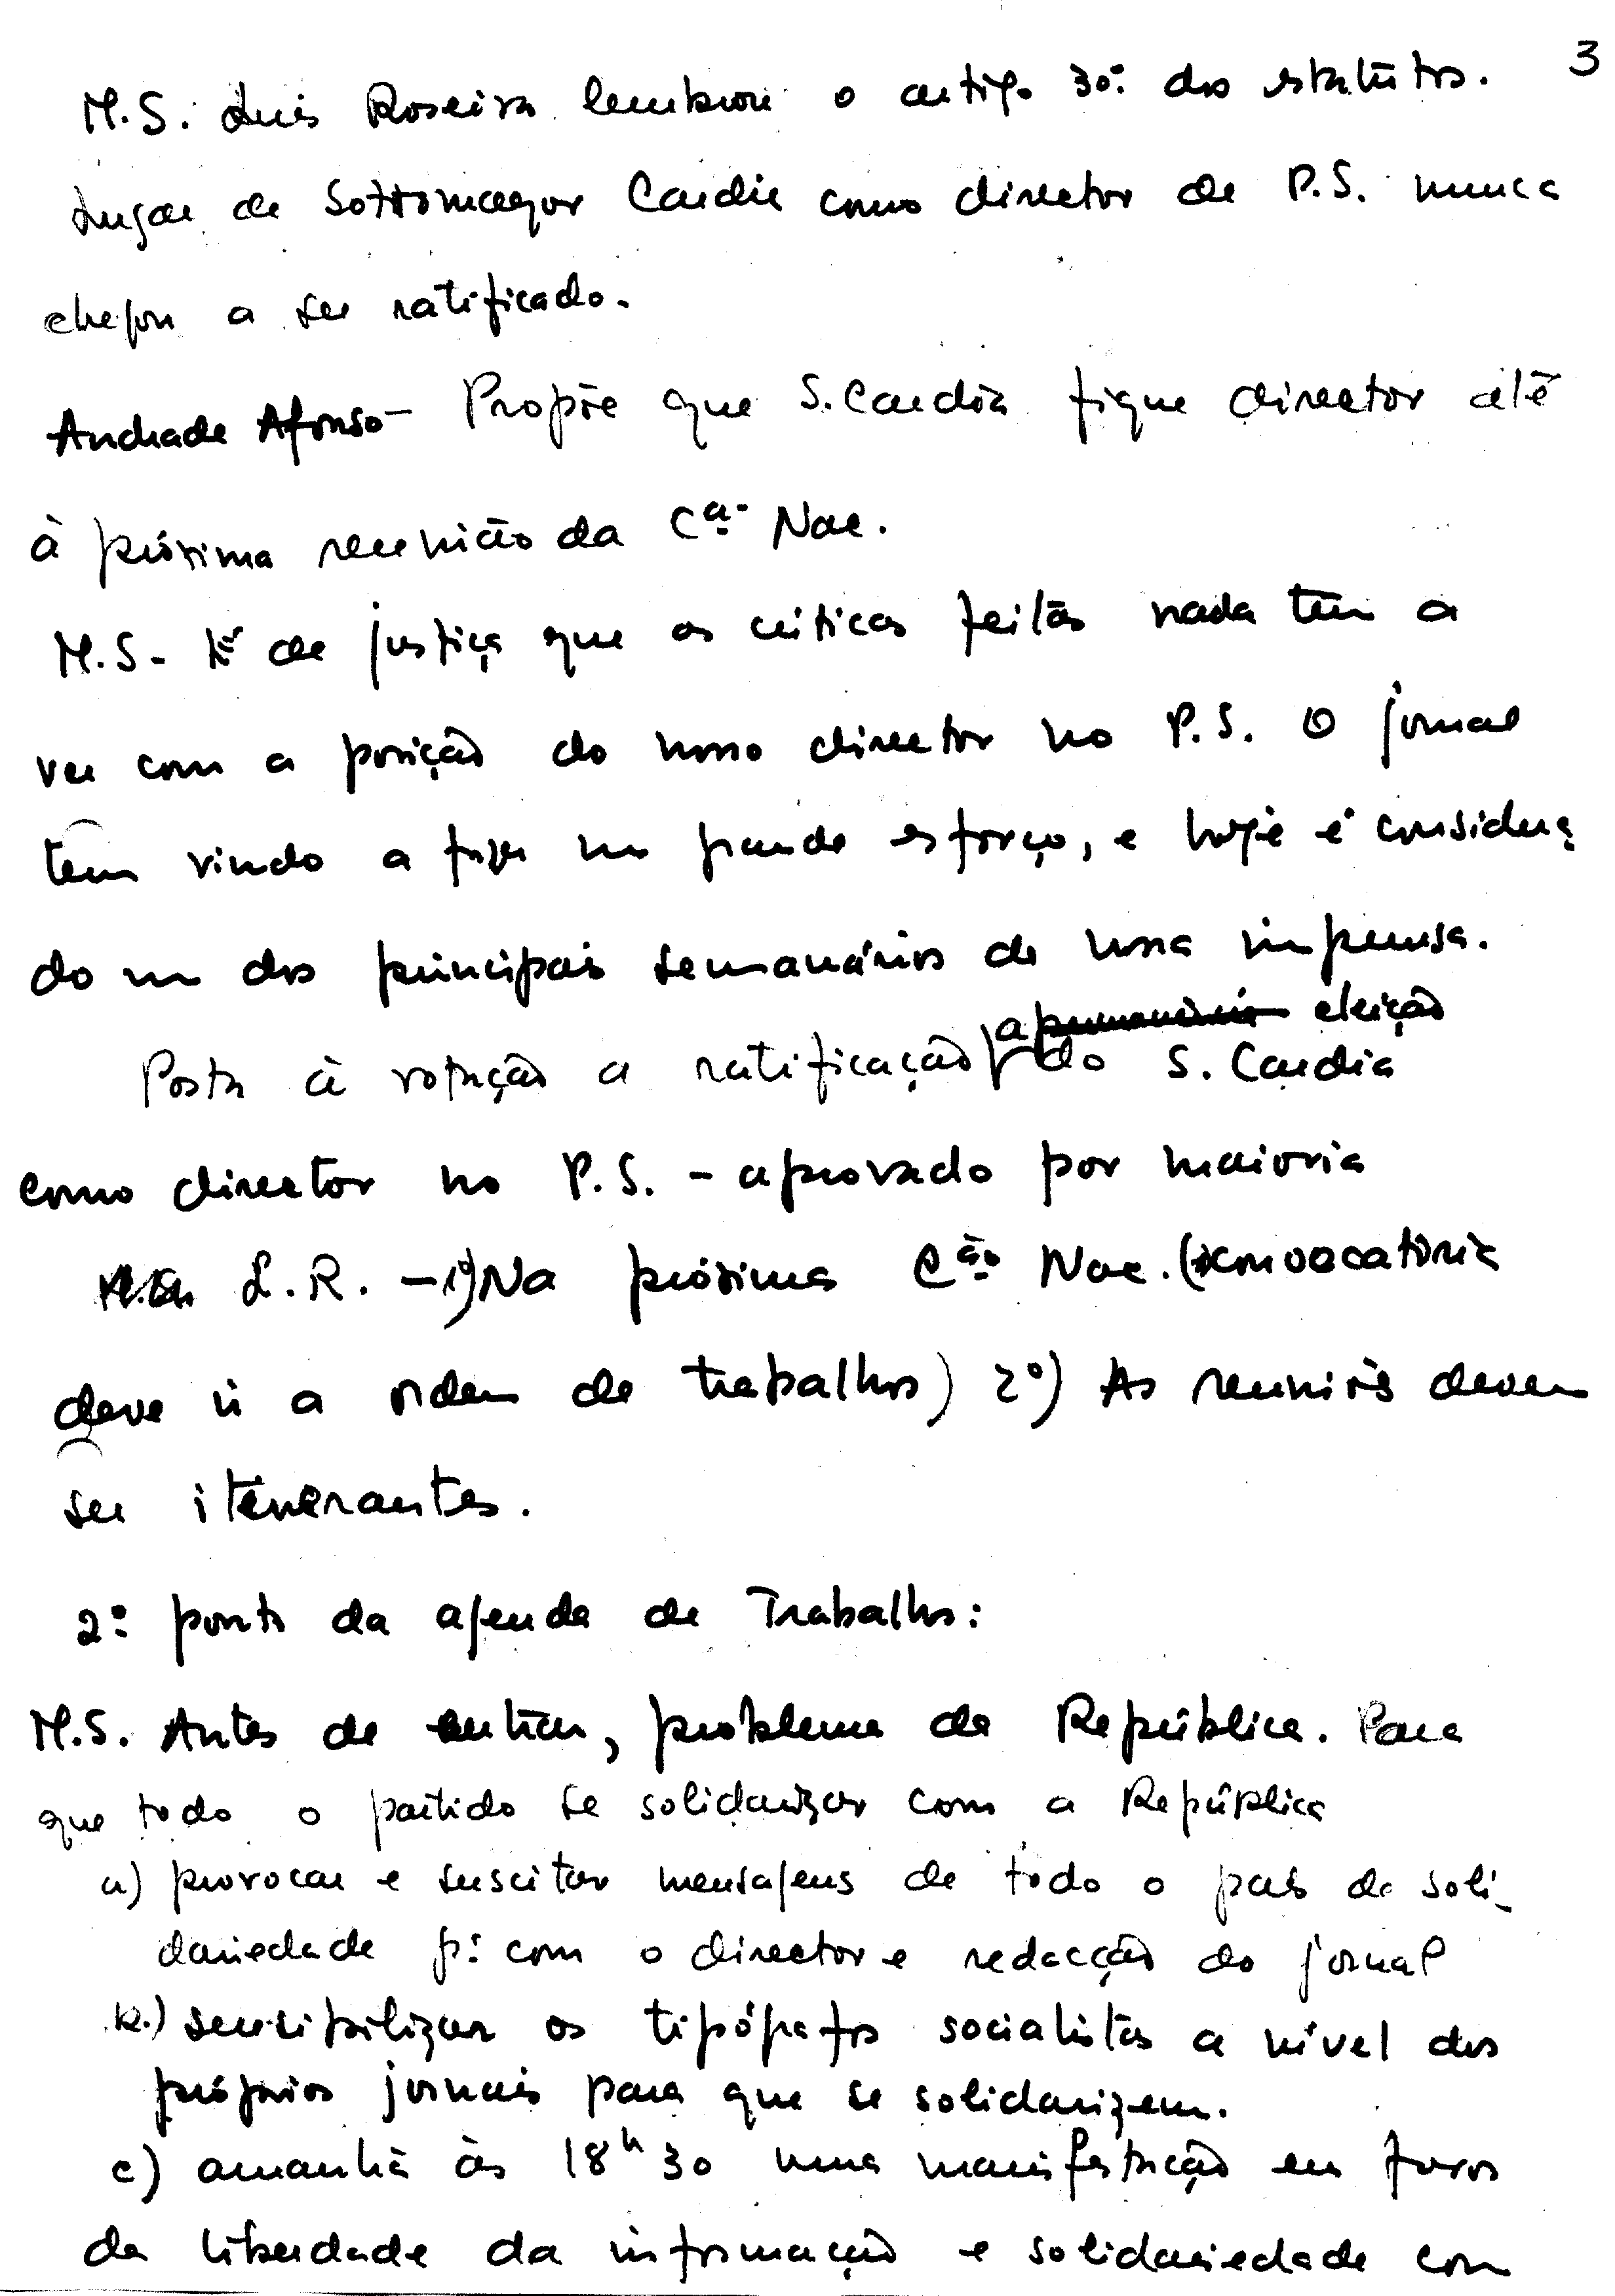 3
M.S. Luis Roseira lembrou o artigo 30º dos estatutos.
Lugar de Sottomayor Cardia como director de P.S. nunca
chegou a ser ratificado.
Andrade Afonso - Propõe que S. Cardia fique director até
à próxima reunião da Cª. Nac.
M.S - É de justiça que as críticas feitas nada têm a
ver com a posição do nosso director no P.S. O jornal
tem vindo a fazer um grande esforço, e hoje é considera
do um dos principais semanários da nossa imprensa.
a eleição
Posta à votação a ratificação do S. Cardia
como director no P.S. - aprovado por maioria
L.R. - 1º) Na próxima Cão. Nac. (convocatória
deve ir a ordem de trabalhos) 2º) As reuniões devem
ser itenerantes.
2º ponto da agenda de Trabalhos:
M.S. Antes de entrar, problema da República. Para
que todo o partido se solidarizar com a República
a) provocar e suscitar mensagens de todo o país de soli-
dariedade p: com o director e redacção do jornal
b.) sensibilizar os tipógrafos socialistas a nível dos
próprios jornais para que se solidarizem.
c) amanhã às 18h 30 uma manifestação em favor
da liberdade da informação e solidariedade com